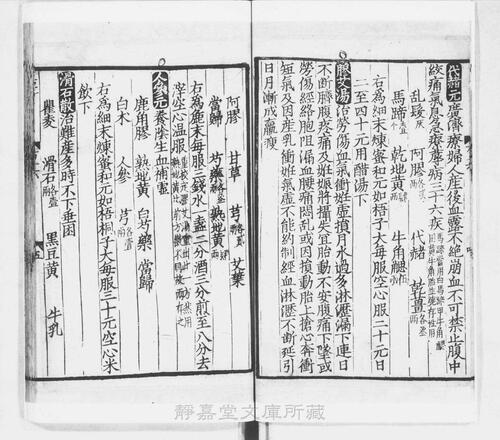 代赭元廣濟療婦人産後血露不絶崩血不可禁止腹中
絞痛氣息急療蓐病三十六疾
亂髮灰 阿膠 代赭 乾薑
馬蹄 乾地黃 牛角䚡
右爲細末煉蜜和元如梧子大每服空心服二十元日
二至四十元用醋湯下
膠艾湯治勞傷血氣衝任虛損月水過多淋瀝漏下連日
不斷臍腹疼痛及妊娠將攝失宜胎動不安腹痛下墜或
勞傷經絡胞阻漏血腰痛悶亂或因損動胎上搶心奔衝
短氣及因産乳衝任氣虛不能約制經血淋瀝不斷延引
日月漸成羸瘦
阿膠 甘草 芎 艾葉
當歸 芍藥 熟地黃
右爲麤末每服三錢水一盞二分酒三分煎至八分去
滓空心温服
人參元養陰生血補虛
鹿角膠 熟地黃 白芍藥 當歸
白术 人參 芎
右爲細末煉蜜和元如梧桐子大每服三十元空心米
飲下
滑石散治難産多時不下垂困
瞿麥 滑石 黑豆黃 牛乳
靜嘉堂文庫所藏